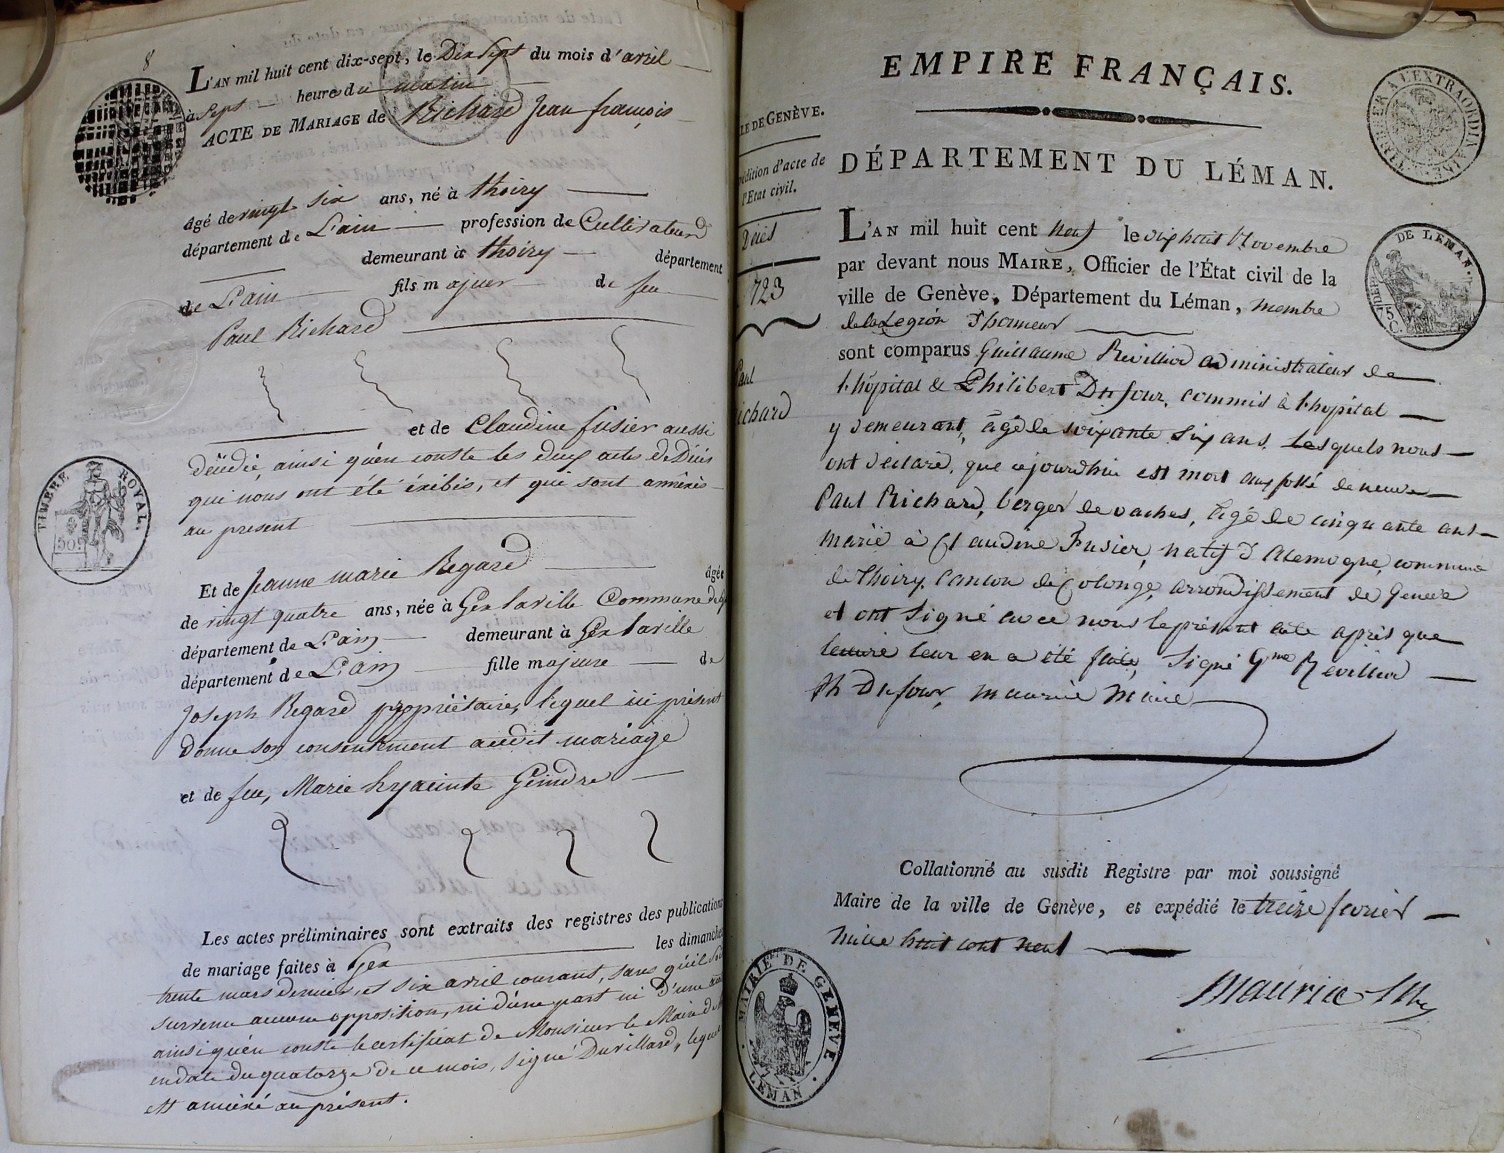 8
L'AN mil huit cent dix-sept, le Dix Sept du mois d'avril
à Sept heures du matin
ACTE DE MARIAGE de Richard Jean françois
âgé de vingt six ans, né à thoiry
département de L'ain profession de Cultivateur
demeurant à thoiry département
de L'ain fils majeur de feu
Paul Richard
et de Claudine fusier aussi
décédié, ainsi qu'en conste les deux actes de Décès
qui nous ont été éxibés, et qui sont annéxés
au present
Et de Jeanne marie Regard âgée
de vingt quatre ans, née à Gex laville Commune de
département de L'ain demeurant à Gex laville
département de L'ain fille majeure de
Joseph Regard propriétaire, lequel ici présent
Donne son consentement audit mariage
et de feue, Marie hyacinte Geindre
Les actes préliminaires sont extraits des registres des publications
de mariage faites à Gex les dimanches
trente mars dernier, et six avril courant, sans qu'il soit
survenu aucune opposition, ni d'une part ni d'une
ainsi qu'en conste le certificat de Monsieur le Maire de
en date du quatorze de ce mois, signé Duvillard, lequel
est annéxé au présent.
TIMBRE ROYAL.
50
EMPIRE FRANÇAIS.
DÉPARTEMENT DU LÉMAN.
LE DE GENÈVE.
édition d'acte de
l'Etat civil.
Décès
723
Paul
Richard
TIMBRE A L'EXTRAORDINAIRE
DE LEMAN.
5
C.
L'AN mil huit cent neuf le dix huit Novembre
par devant nous MAIRE, Officier de l'État civil de la
ville de Genève, Département du Léman, membre
de la Legion d'honneur
sont comparus Guillaume Revilliod administrateur de
l'hôpital & Philibert Dufour, commis à l'hôpital
y demeurant, âgé de soixante six ans, Lesquels nous
ont déclaré, que cejourdhui est mort aux fossé de neuve
Paul Richard, berger de vaches, âgé de cinquante ans
marié à Claudine Fusier, natif d'Alemogne, commune
de Thoiry, Canton de Colonge, arrondissement de Geneve
et ont signé avec nous le présent acte après que
lecture leur en a été faite, Signé Gme Revilliod
Ph Dufour, Maurice Maire
Collationné au susdit Registre par moi soussigné
Maire de la ville de Genève, et expédié le treize fevrier
mille huit cent neuf
Maurice
MAIRIE DE GENÈVE
LEMAN